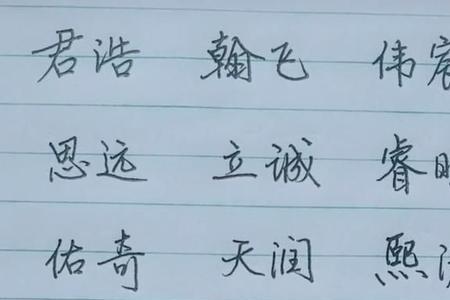 君浩 翰飞 伟宸
思远 立诚 睿明
佑奇 天润 熙